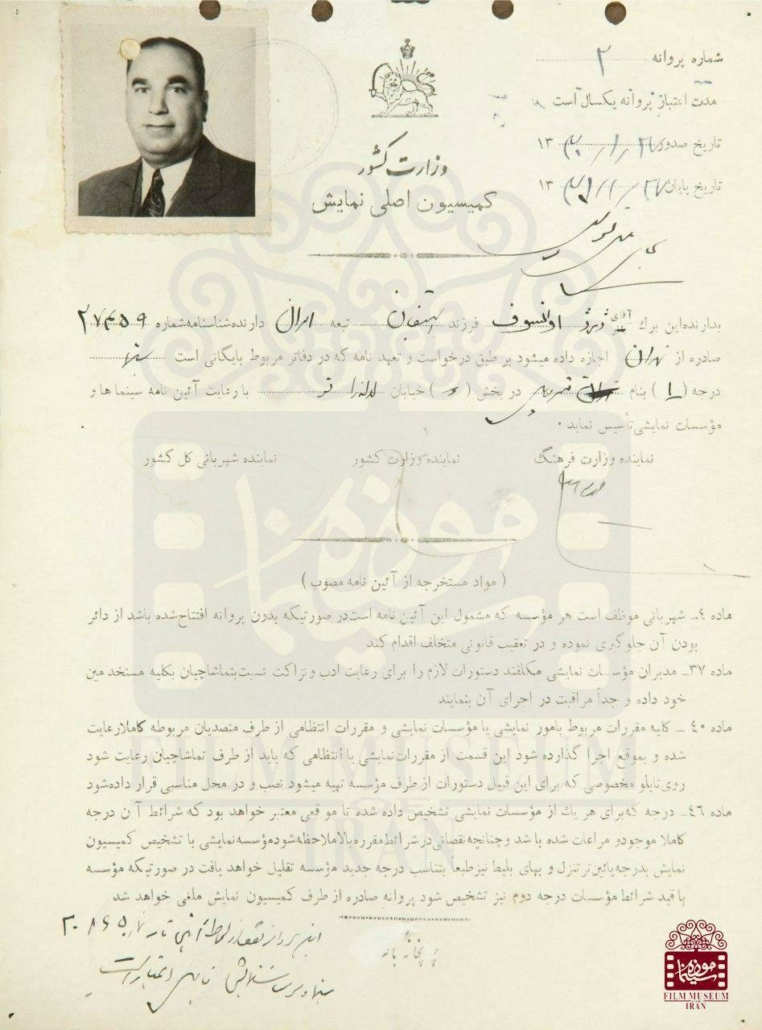 شماره پروانه ۲
مدت اعتبار پروانه یکسال است
تاریخ صدور ۱۳
تاریخ پایان ۱۳
وزارت کشور
کمیسیون اصلی نمایش
بدارنده این برك آقای اوانسوف فرزند استپان تبعه ایران دارنده شناسنامه شماره ۲۷۴۵۹
صادره از تهران اجازه داده میشود بر طبق درخواست و تعهد نامه که در دفاتر مربوط بایگانی است
درجه (۱) بنام در بخش ( ) خیابان لاله‌زار نو با رعایت آئین نامه سینما ها و
مؤسسات نمایشی تأسیس نماید.
نماینده وزارت فرهنگ نماینده وزارت کشور نماینده شهربانی کل کشور
( مواد مستخرجه از آئین نامه مصوب )
ماده ٤ـ شهربانی موظف است هر مؤسسه که مشمول این آئین نامه است در صورتیکه بدون پروانه افتتاح شده باشد از دائر
بودن آن جلوگیری نموده و در تعقیب قانونی متخلف اقدام کند
ماده ۳۷ـ مدیران مؤسسات نمایشی مکلفند دستورات لازم را برای رعایت ادب و نزاکت نسبت بتماشاچیان بکلیه مستخدمین
خود داده و جداً مراقبت در اجرای آن بنمایند
ماده ٤۰ ـ کلیه مقررات مربوط بامور نمایشی یا مؤسسات نمایشی و مقررات انتظامی از طرف متصدیان مربوطه کاملا رعایت
شده و بموقع اجرا گذارده شود این قسمت از مقررات نمایشی یا انتظامی که باید از طرف تماشاچیان رعایت شود
روی تابلو مخصوصی که برای این قبیل دستورات از طرف مؤسسه تهیه میشود نصب و در محل مناسبی قرار داده شود
ماده ٤٦ـ درجه که برای هر یك از مؤسسات نمایشی تشخیص داده شده تا موقعی معتبر خواهد بود که شرائط آن درجه
کاملا موجود و مراعات شده باشد و چنانچه نقصانی در شرائط مقرره بالا ملاحظه شود مؤسسه نمایشی با تشخیص کمیسیون
نمایش بدرجه پائین‌تر تنزل و بهای بلیط نیز طبعا بتناسب درجه جدید مؤسسه تقلیل خواهد یافت در صورتیکه مؤسسه
فاقد شرائط مؤسسات درجه دوم نیز تشخیص شود پروانه صادره از طرف کمیسیون نمایش ملغی خواهد شد
موزه سینما
FILM MUSEUM
OF
IRAN